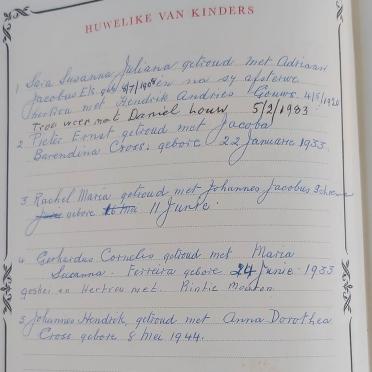 HUWELIKE VAN KINDERS
1 Susanna Juliana getroud met Adriaan
Jacobus Els geb 8/7/1908 en na sy afsterwe
hertrou met Hendrik Andries Gouws 4/5/1920
Trou weer met Daniel Louw 5/2/1983
2. Pieter Ernst getroud met Jacoba
Barendina Cross. gebore 22 Januarie 1933.
3. Rachel Maria getroud met Johannes Jacobus
gebore 11 Junie.
4. Gerhardus Cornelis getroud met Maria
Susanna. Ferreira gebore 24 Junie 1933
en Hertrou met. Rintie Mouton
5. Johannes Hendrik, getroud met Anna Dorothea
Cross gebore 8 Mei 1944.